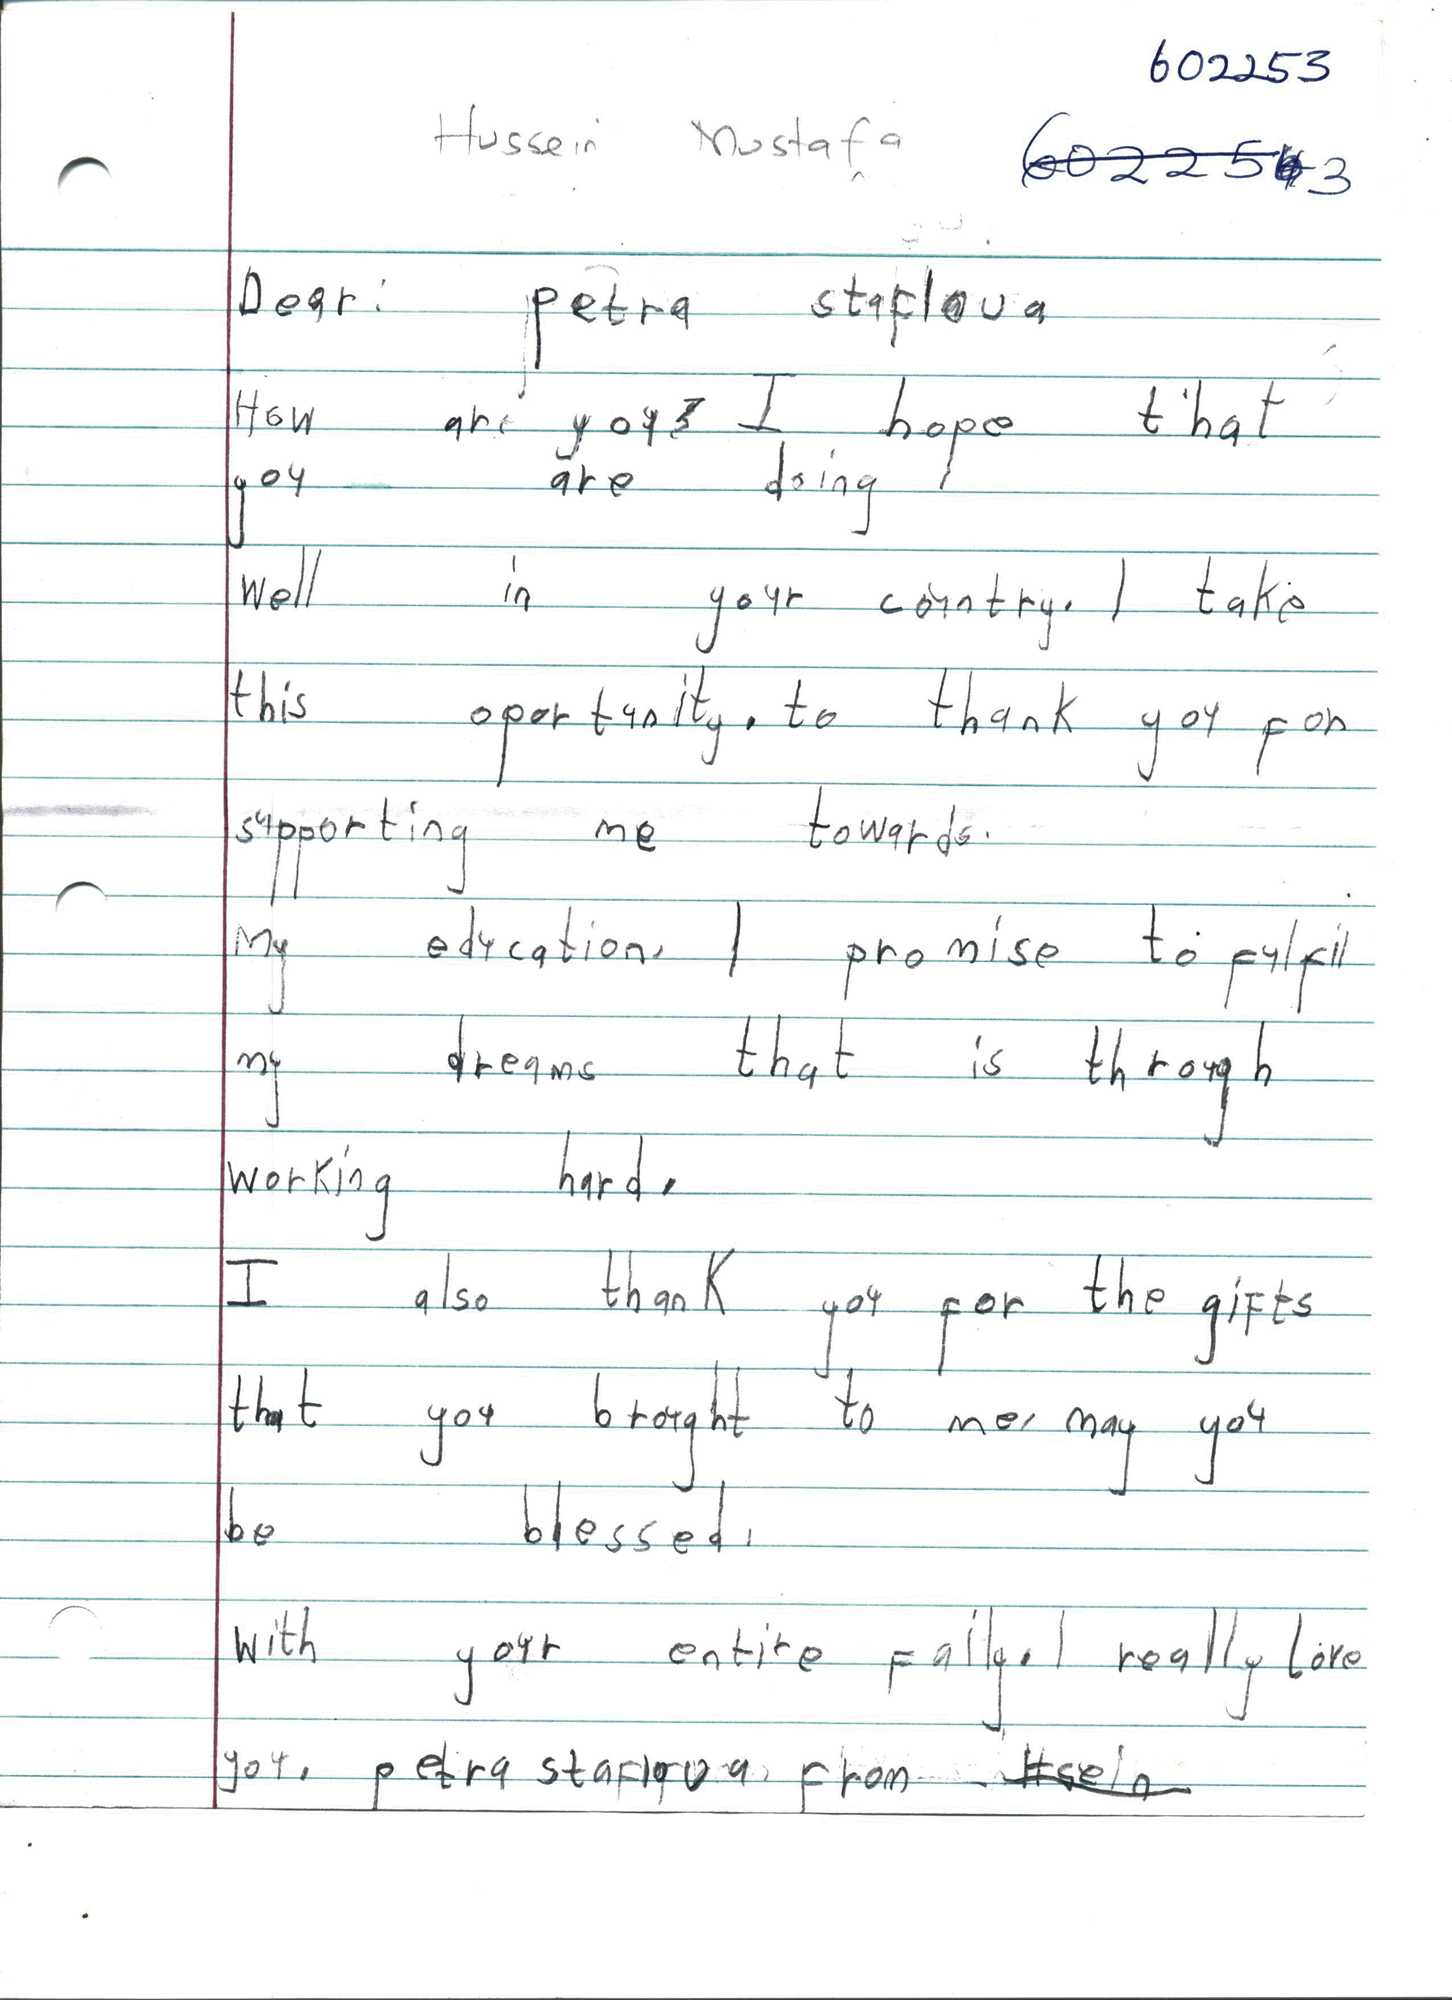 602253
Hussein Mustafa
Dear: petra staflova
How are you? I hope that
you are doing
well in your country. I take
this oportunity. to thank you for
supporting me towards.
My education. I promise to fulfil
my dreams that is through
working hard.
I also thank you for the gifts
that you brought to me. may you
be blessed.
with your entire faily. I really love
you. petra staflova. from